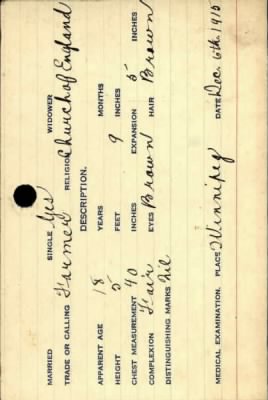 MARRIED SINGLE Yes WIDOWER
TRADE OR CALLING Farmer RELIGION Church of England
DESCRIPTION.
APPARENT AGE 18 YEARS MONTHS
HEIGHT 5 FEET 9 INCHES
CHEST MEASUREMENT 40 INCHES EXPANSION 5 INCHES
COMPLEXION Fair EYES Brown HAIR Brown
DISTINGUISHING MARKS Nil
MEDICAL EXAMINATION. PLACE Winnipeg DATE Dec. 6th. 1915